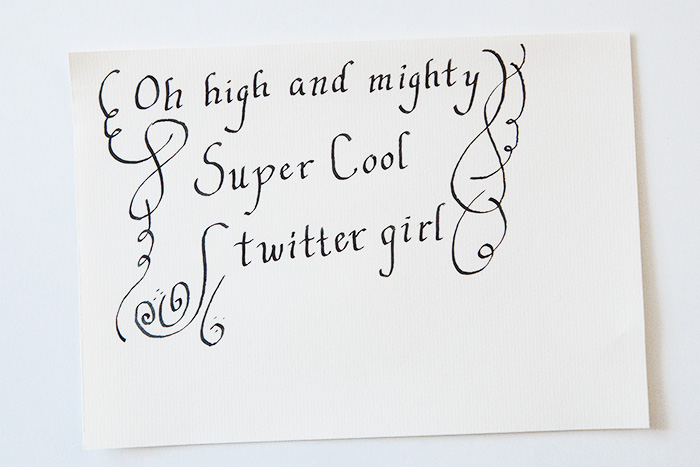 Oh high and mighty
Super Cool
twitter girl